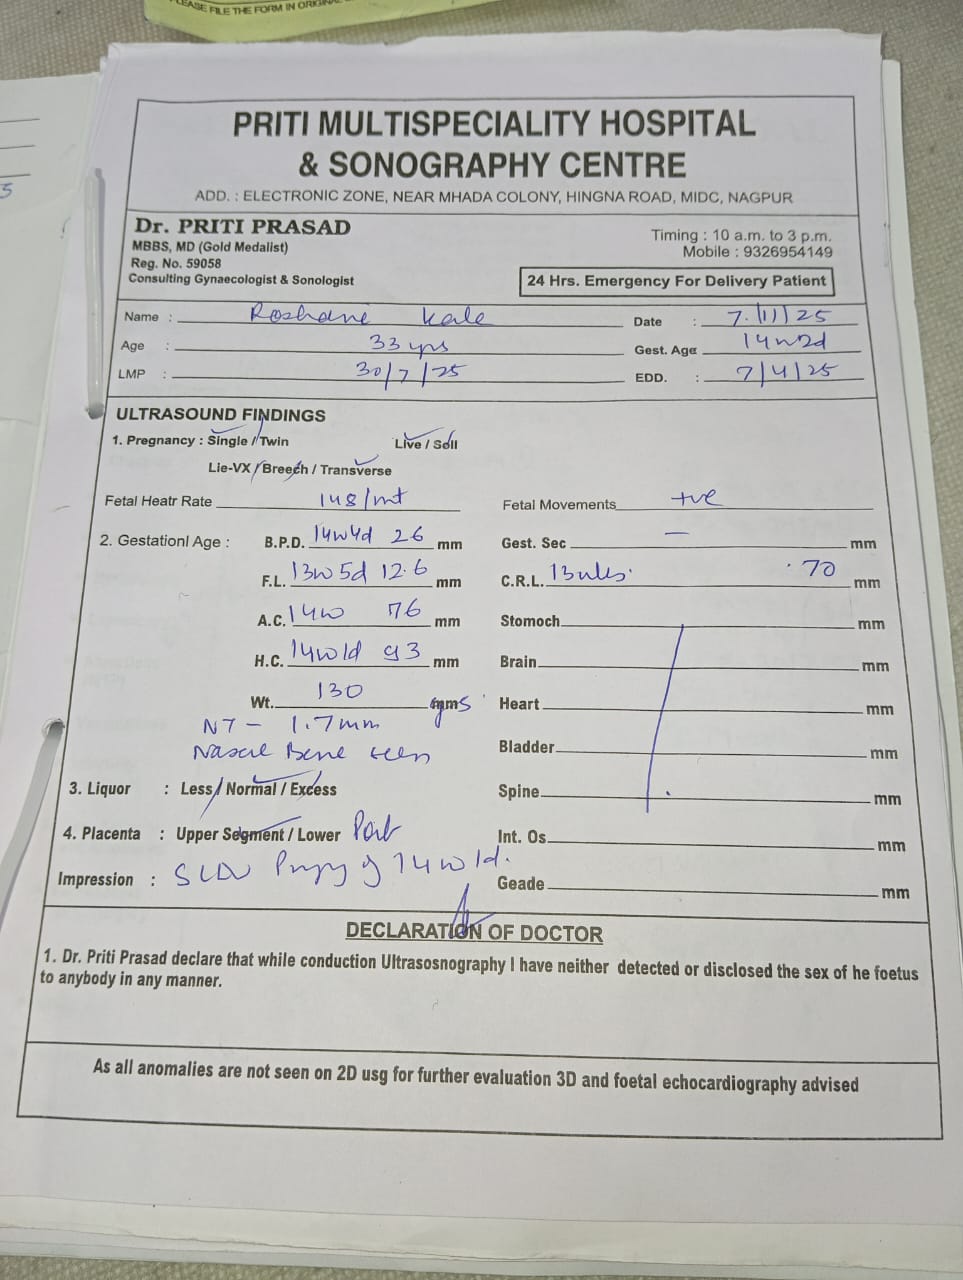 PLEASE FILE THE FORM IN ORIGINAL
5
PRITI MULTISPECIALITY HOSPITAL
& SONOGRAPHY CENTRE
ADD. : ELECTRONIC ZONE, NEAR MHADA COLONY, HINGNA ROAD, MIDC, NAGPUR
Dr. PRITI PRASAD
MBBS, MD (Gold Medalist)
Reg. No. 59058
Consulting Gynaecologist & Sonologist
Timing : 10 a.m. to 3 p.m.
Mobile : 9326954149
24 Hrs. Emergency For Delivery Patient
Name : Roshane Kale
Date : 7/11/25
Age : 33 yrs
Gest. Age 14w2d
LMP : 30/7/25
EDD. : 7/4/25
ULTRASOUND FINDINGS
1. Pregnancy : Single / Twin Live / Soll
Lie-VX / Breech / Transverse
Fetal Heatr Rate 148/mt Fetal Movements +ve
2. Gestationl Age : B.P.D. 14w4d 26 mm Gest. Sec — mm
F.L. 13w 5d 12.6 mm C.R.L. 13wks. 70 mm
A.C. 14w 76 mm Stomoch mm
H.C. 14w1d 93 mm Brain mm
Wt. 130 gms Heart mm
NT - 1.7mm
Nasal Bone seen
Bladder mm
3. Liquor : Less / Normal / Excess Spine mm
4. Placenta : Upper Segment / Lower Post Int. Os. mm
Impression : SLIU Pregy of 14w1d. Geade mm
DECLARATION OF DOCTOR
1. Dr. Priti Prasad declare that while conduction Ultrasosnography I have neither detected or disclosed the sex of he foetus
to anybody in any manner.
As all anomalies are not seen on 2D usg for further evaluation 3D and foetal echocardiography advised